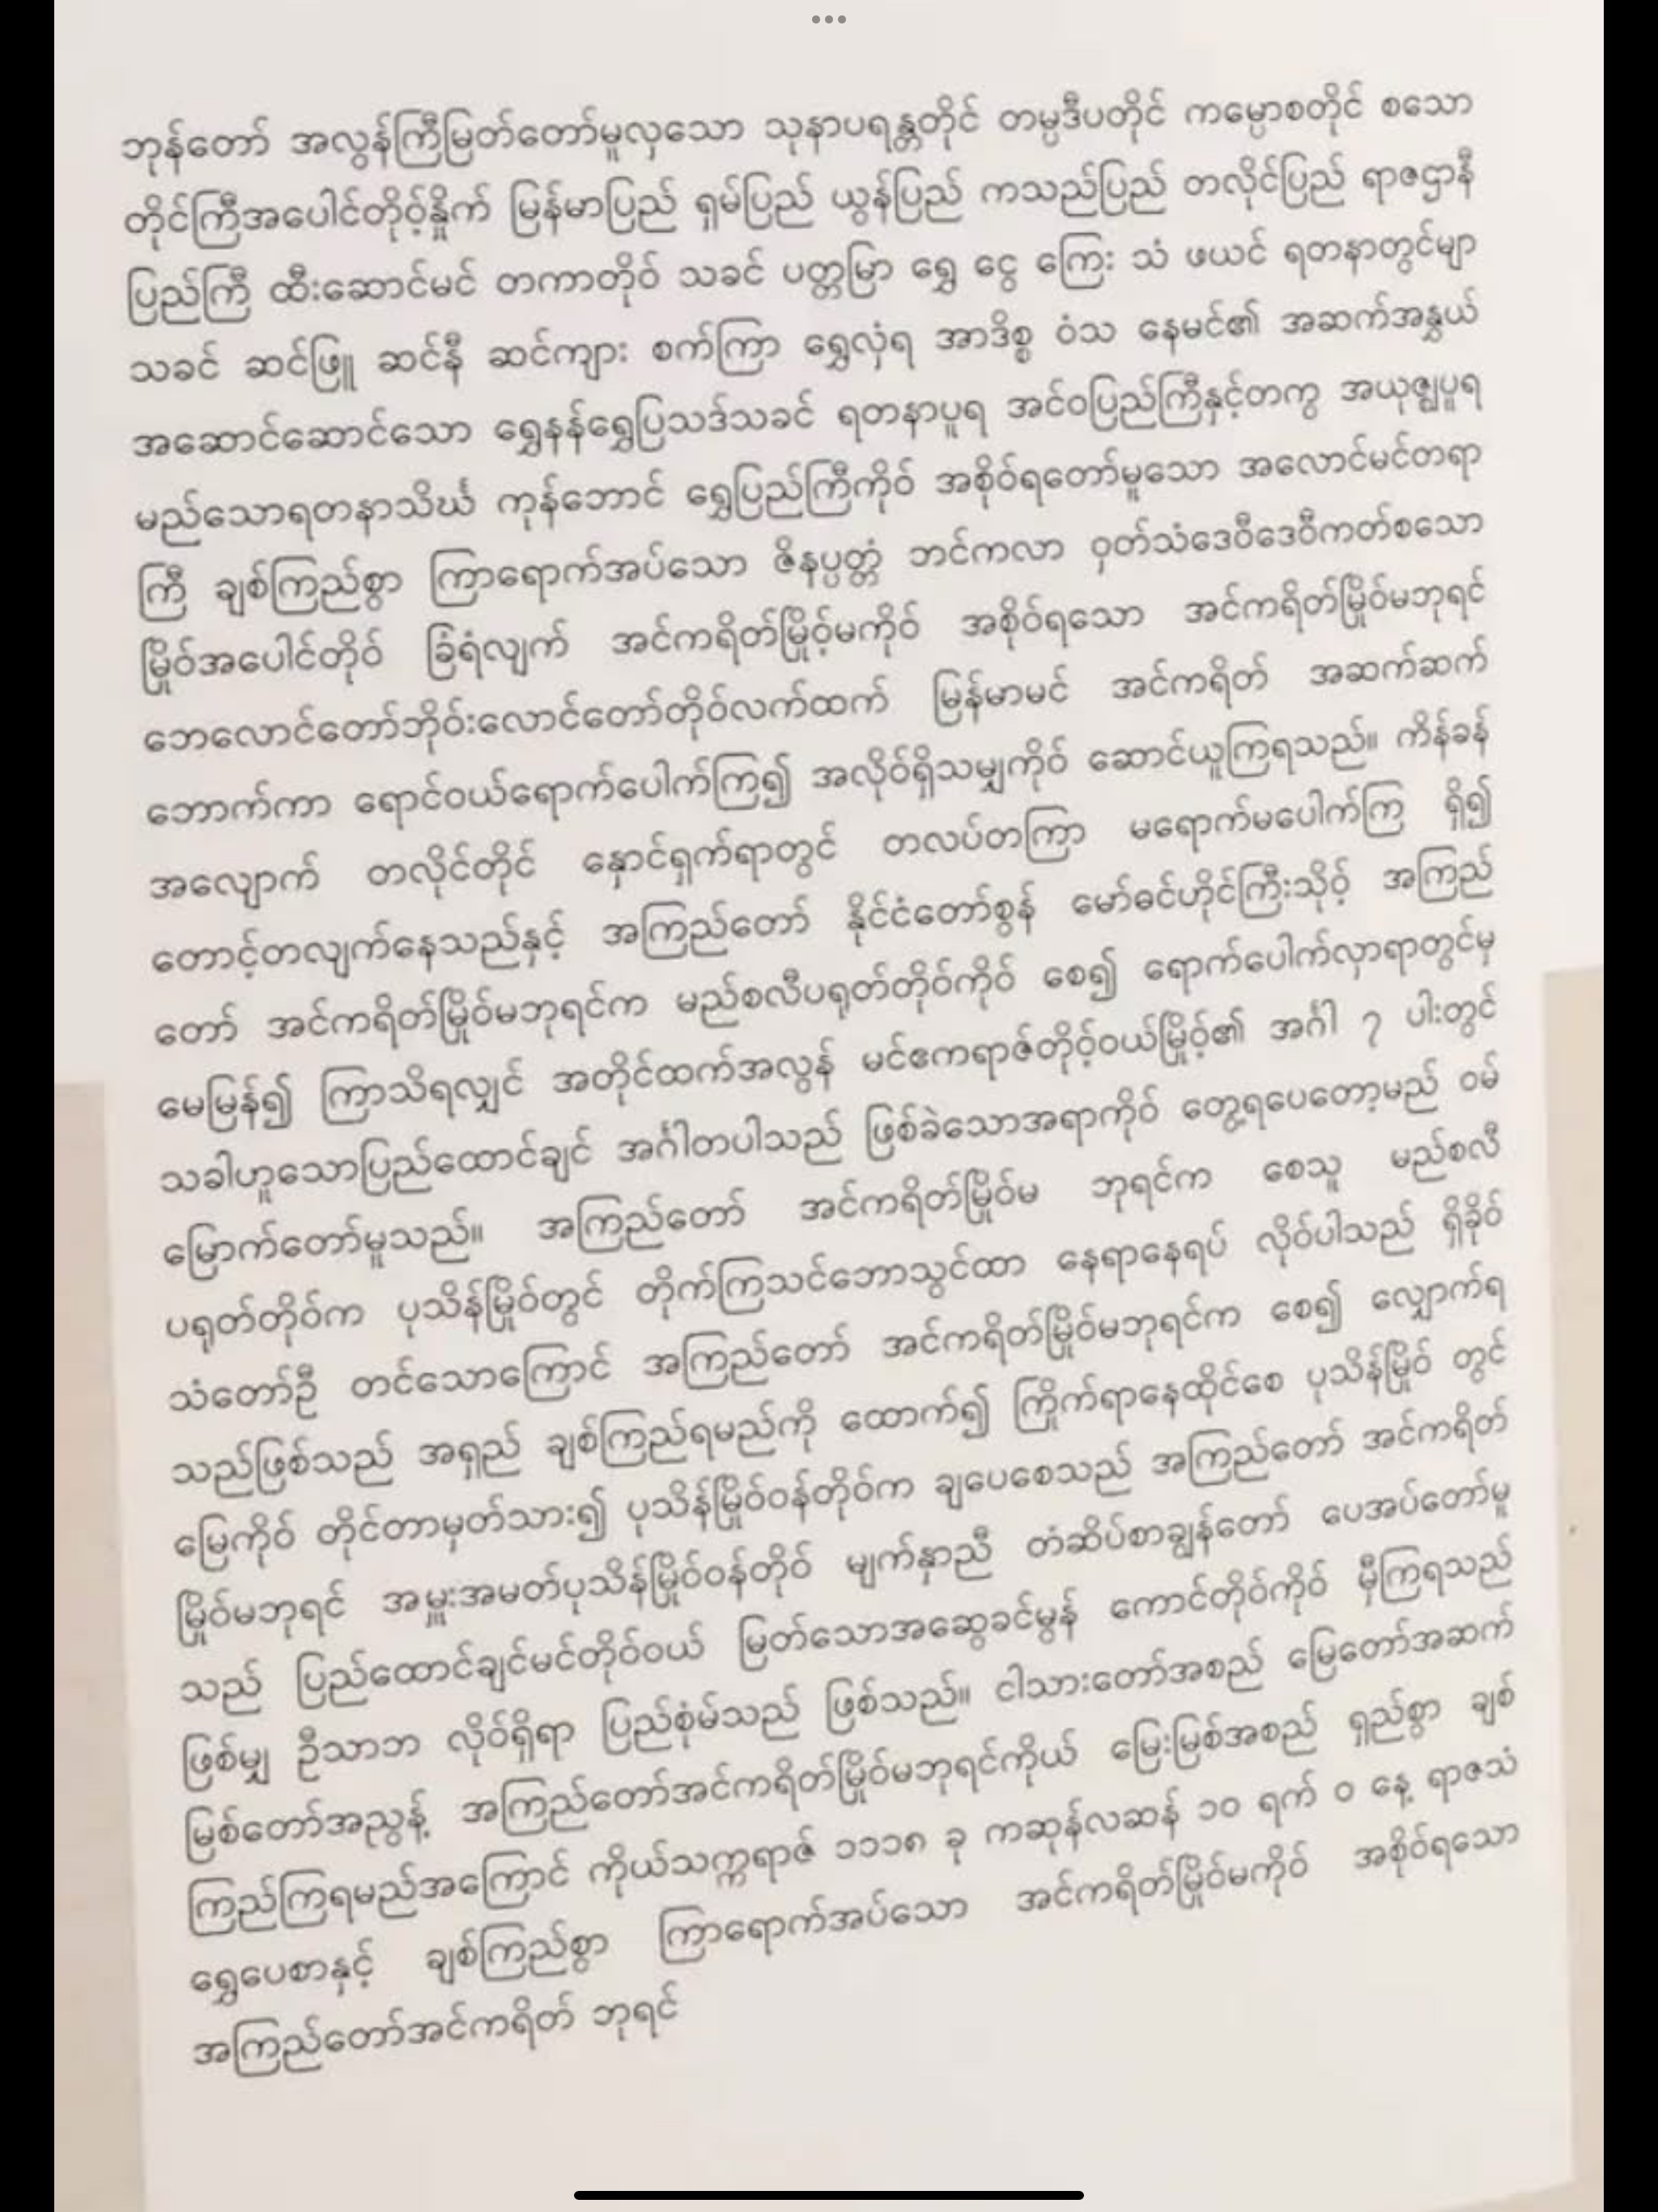 ဘုန်တော် အလွန်ကြီမြတ်တော်မူလှသော သုနာပရန္တတိုင် တမ္ပဒီပတိုင် ကမ္ပောစတိုင် စသော
တိုင်ကြီအပေါင်တိုဝ့်နှိုက် မြန်မာပြည် ရှမ်ပြည် ယွန်ပြည် ကသည်ပြည် တလိုင်ပြည် ရာဇဌာနီ
ပြည်ကြီ ထီးဆောင်မင် တကာတိုဝ် သခင် ပတ္တမြာ ရွှေ ငွေ ကြေး သံ ဖယင် ရတနာတွင်မျာ
သခင် ဆင်ဖြူ ဆင်နီ ဆင်ကျား စက်ကြာ ရွှေလှံရ အာဒိစ္စ ဝံသ နေမင်၏ အဆက်အနွယ်
အဆောင်ဆောင်သော ရွှေနန်ရွှေပြသဒ်သခင် ရတနာပူရ အင်ဝပြည်ကြီနှင့်တကွ အယုဇ္ဈပူရ
မည်သောရတနာသိင်္ဃ ကုန်ဘောင် ရွှေပြည်ကြီကိုဝ် အစိုဝ်ရတော်မူသော အလောင်မင်တရာ
ကြီ ချစ်ကြည်စွာ ကြာရောက်အပ်သော ဇိနပ္ပတ္တံ ဘင်ကလာ ဝှတ်သံဒေဝီဒေဝီကတ်စသော
မြိုဝ်အပေါင်တိုဝ် ခြံရံလျက် အင်ကရိတ်မြိုဝ့်မကိုဝ် အစိုဝ်ရသော အင်ကရိတ်မြိုဝ်မဘုရင်
ဘေလောင်တော်ဘိုဝ်းလောင်တော်တိုဝ်လက်ထက် မြန်မာမင် အင်ကရိတ် အဆက်ဆက်
ဘောက်ကာ ရောင်ဝယ်ရောက်ပေါက်ကြ၍ အလိုဝ်ရှိသမျှကိုဝ် ဆောင်ယူကြရသည်။ ကိန်ခန်
အလျောက် တလိုင်တိုင် နှောင်ရှက်ရာတွင် တလပ်တကြာ မရောက်မပေါက်ကြ ရှိ၍
တောင့်တလျက်နေသည်နှင့် အကြည်တော် နိုင်ငံတော်စွန် မော်ဓင်ဟိုင်ကြီးသိုဝ့် အကြည်
တော် အင်ကရိတ်မြိုဝ်မဘုရင်က မည်စလီပရုတ်တိုဝ်ကိုဝ် စေ၍ ရောက်ပေါက်လှာရာတွင်မှ
မေမြန်၍ ကြာသိရလျှင် အတိုင်ထက်အလွန် မင်ဧကရာဇ်တိုဝ့်ဝယ်မြိုဝ့်၏ အင်္ဂါ ၇ ပါးတွင်
သခါဟူသောပြည်ထောင်ချင် အင်္ဂါတပါသည် ဖြစ်ခဲသောအရာကိုဝ် တွေ့ရပေတော့မည် ဝမ်
မြောက်တော်မူသည်။ အကြည်တော် အင်ကရိတ်မြိုဝ်မ ဘုရင်က စေသူ မည်စလီ
ပရုတ်တိုဝ်က ပုသိန်မြိုဝ်တွင် တိုက်ကြသင်ဘောသွင်ထာ နေရာနေရပ် လိုဝ်ပါသည် ရှိခိုဝ်
သံတော်ဦ တင်သောကြောင် အကြည်တော် အင်ကရိတ်မြိုဝ်မဘုရင်က စေ၍ လျှောက်ရ
သည်ဖြစ်သည် အရှည် ချစ်ကြည်ရမည်ကို ထောက်၍ ကြိုက်ရာနေထိုင်စေ ပုသိန်မြိုဝ် တွင်
မြေကိုဝ် တိုင်တာမှတ်သား၍ ပုသိန်မြိုဝ်ဝန်တိုဝ်က ချပေစေသည် အကြည်တော် အင်ကရိတ်
မြိုဝ်မဘုရင် အမှူးအမတ်ပုသိန်မြိုဝ်ဝန်တိုဝ် မျက်နှာညီ တံဆိပ်စာချွန်တော် ပေအပ်တော်မူ
သည် ပြည်ထောင်ချင်မင်တိုဝ်ဝယ် မြတ်သောအဆွေခင်မွန် ကောင်တိုဝ်ကိုဝ် မှီကြရသည်
ဖြစ်မျှ ဦသာဘ လိုဝ်ရှိရာ ပြည်စုံမ်သည် ဖြစ်သည်။ ငါသားတော်အစည် မြေတော်အဆက်
မြစ်တော်အညွန့် အကြည်တော်အင်ကရိတ်မြိုဝ်မဘုရင်ကိုယ် မြေးမြစ်အစည် ရှည်စွာ ချစ်
ကြည်ကြရမည်အကြောင် ကိုယ်သက္ကရာဇ် ၁၁၁၈ ခု ကဆုန်လဆန် ၁၀ ရက် ၀ နေ့ ရာဇသံ
ရွှေပေစာနှင့် ချစ်ကြည်စွာ ကြာရောက်အပ်သော အင်ကရိတ်မြိုဝ်မကိုဝ် အစိုဝ်ရသော
အကြည်တော်အင်ကရိတ် ဘုရင်